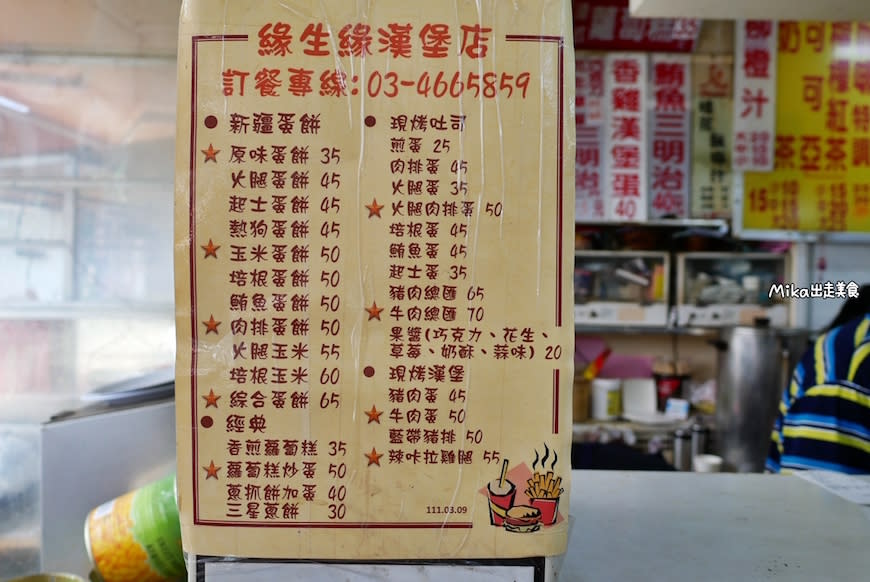 緣生緣漢堡店
訂餐專線:03-4665859
新疆蛋餅
原味蛋餅 35
火腿蛋餅 45
起士蛋餅 45
熱狗蛋餅 45
玉米蛋餅 50
培根蛋餅 50
鮪魚蛋餅 50
肉排蛋餅 50
火腿玉米 55
培根玉米 60
綜合蛋餅 65
經典
香煎蘿蔔糕 35
蘿蔔糕炒蛋 50
蔥抓餅加蛋 40
三星蔥餅 30
現烤吐司
煎蛋 25
肉排蛋 45
火腿蛋 35
火腿肉排蛋 50
培根蛋 45
鮪魚蛋 45
起士蛋 35
豬肉總匯 65
牛肉總匯 70
果醬(巧克力、花生、
草莓、奶酥、蒜味) 20
現烤漢堡
豬肉蛋 45
牛肉蛋 50
藍帶豬排 50
辣味卡拉雞腿 55
111.03.09
香雞漢堡蛋 40
鮪魚三明治
柳橙汁
15
Mika出走美食